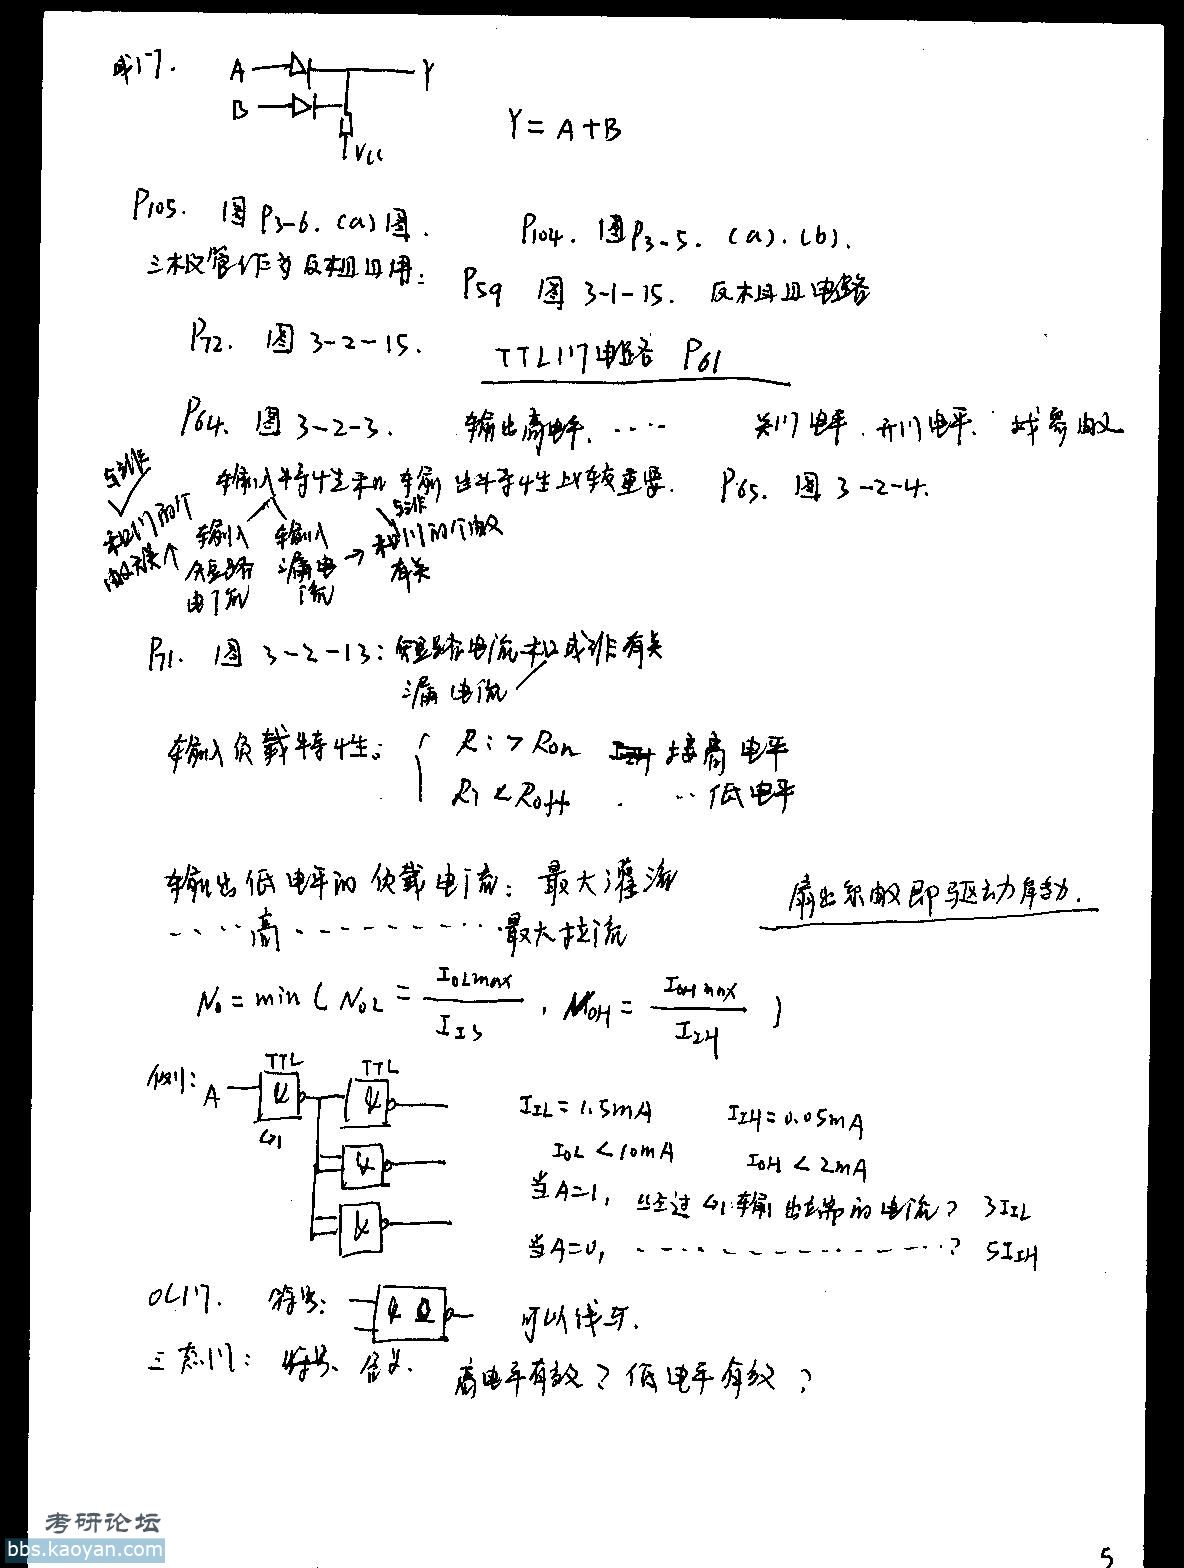 或门. A Y
B
Vcc
Y = A + B
P105. 图P3-6. (a)图. P104. 图P3-5. (a). (b).
三极管作为反相应用: P59 图 3-1-15. 反相电路
P72. 图 3-2-15. TTL门电路 P61
P64. 图 3-2-3. 输出高电平. ···· 关门电平. 开门电平. 扇出系数
输入特性和输出特性比较重要. P65. 图 3-2-4.
与非 和门的个数无关 输入短路电流 输入漏电流 → 与非 和门的个数有关
P71. 图 3-2-13: 短路电流和或非有关
漏电流
输入负载特性: Ri > Ron 接高电平
Ri < Roff ·· 低电平
输出低电平的负载电流: 最大灌流
····高········· 最大拉流
扇出系数即驱动能力.
No = min ( NOL = IOLmax / IIS , NOH = IOHmax / IIH )
例: A TTL & TTL &
G1 & &
IIL = 1.5mA IIH = 0.05mA
IOL < 10mA IOH < 2mA
当A=1, 经过G1输出端的电流? 3IIL
当A=0, ··········? 5IIH
OC门. 符号: & 可以线与.
三态门: 符号、含义. 高电平有效? 低电平有效?
考研论坛
bbs.kaoyan.com
5